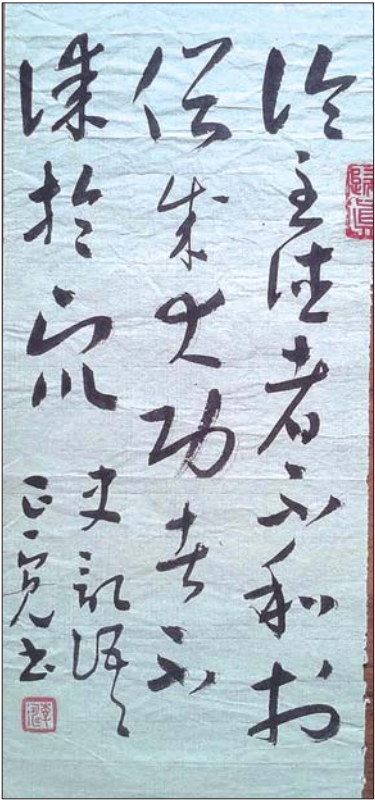 歸真
論至德者不和於
俗成大功者不
謀於眾
史記語
正寬書